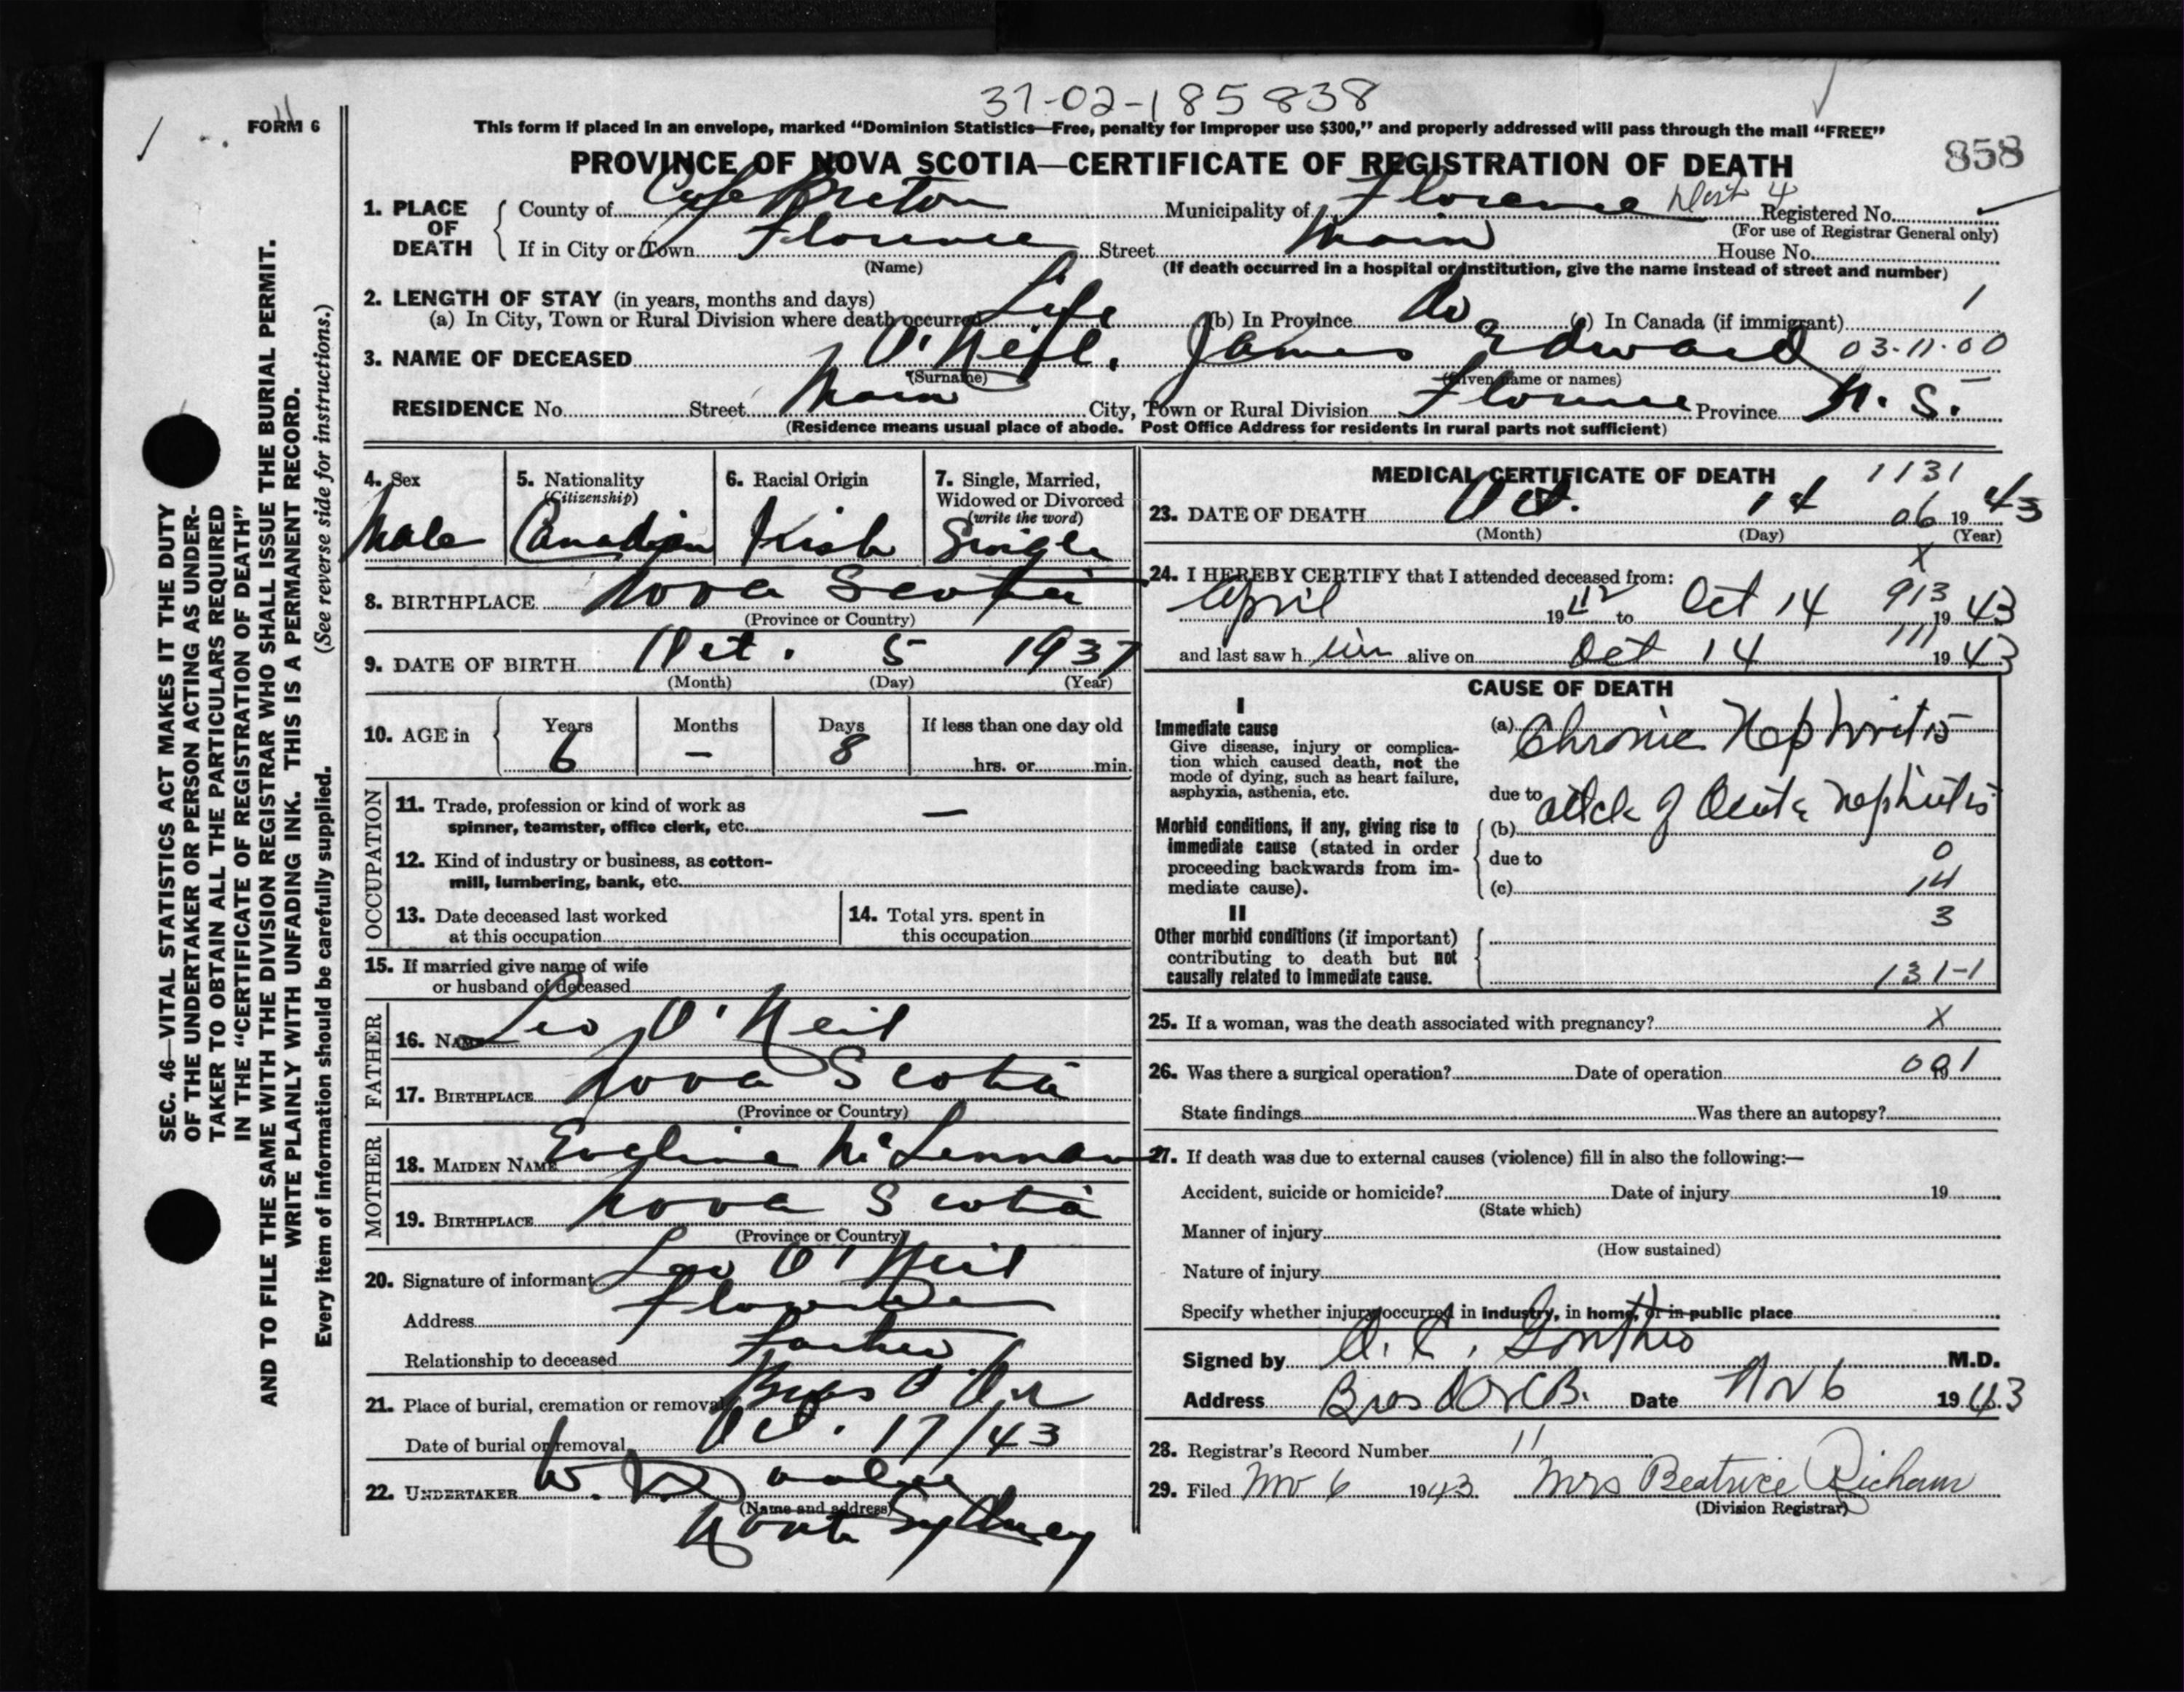 37-02-185838
FORM 6
This form if placed in an envelope, marked “Dominion Statistics—Free, penalty for improper use $300,” and properly addressed will pass through the mail “FREE”
PROVINCE OF NOVA SCOTIA—CERTIFICATE OF REGISTRATION OF DEATH
858
1. PLACE OF DEATH
County of Cape Breton Municipality of Florence Dist 4 Registered No.
(For use of Registrar General only)
If in City or Town Florence Street Main House No.
(Name) (If death occurred in a hospital or institution, give the name instead of street and number)
2. LENGTH OF STAY (in years, months and days)
(a) In City, Town or Rural Division where death occurred Life (b) In Province Do (c) In Canada (if immigrant) 1
3. NAME OF DECEASED O'Neil. James Edward 03-11-00
(Surname) (Given name or names)
RESIDENCE No. Street Main City, Town or Rural Division Florence Province N. S.
(Residence means usual place of abode. Post Office Address for residents in rural parts not sufficient)
4. Sex
Male
5. Nationality
(Citizenship)
Canadian
6. Racial Origin
Irish
7. Single, Married,
Widowed or Divorced
(write the word)
Single
8. BIRTHPLACE Nova Scotia
(Province or Country)
9. DATE OF BIRTH Oct. 5 1937
(Month) (Day) (Year)
10. AGE in
Years Months Days If less than one day old
6 — 8 hrs. or min.
OCCUPATION
11. Trade, profession or kind of work as
spinner, teamster, office clerk, etc. —
12. Kind of industry or business, as cotton-
mill, lumbering, bank, etc.
13. Date deceased last worked
at this occupation
14. Total yrs. spent in
this occupation
15. If married give name of wife
or husband of deceased
FATHER
16. NAME Leo O'Neil
17. BIRTHPLACE Nova Scotia
(Province or Country)
MOTHER
18. MAIDEN NAME Eveline McLennan
19. BIRTHPLACE Nova Scotia
(Province or Country)
20. Signature of informant Leo O'Neil
Address Florence
Relationship to deceased Father
21. Place of burial, cremation or removal Bras D'Or
Date of burial or removal Oct. 17/43
22. UNDERTAKER W.
(Name and address)
North Sydney
MEDICAL CERTIFICATE OF DEATH 1131
23. DATE OF DEATH Oct. 14 06 1943
(Month) (Day) (Year)
X
24. I HEREBY CERTIFY that I attended deceased from:
913
April 1942 to Oct 14 1943
111
and last saw him alive on Oct 14 1943
CAUSE OF DEATH
I
Immediate cause
Give disease, injury or complica-
tion which caused death, not the
mode of dying, such as heart failure,
asphyxia, asthenia, etc.
(a) Chronic Nephritis
due to
Morbid conditions, if any, giving rise to
immediate cause (stated in order
proceeding backwards from im-
mediate cause).
(b) attck of Acute nephritis
due to 0
(c) 14
II 3
Other morbid conditions (if important)
contributing to death but not
causally related to immediate cause.
131-1
25. If a woman, was the death associated with pregnancy? X
26. Was there a surgical operation? Date of operation 19 001
State findings Was there an autopsy?
27. If death was due to external causes (violence) fill in also the following:—
Accident, suicide or homicide? Date of injury 19
(State which)
Manner of injury
(How sustained)
Nature of injury
Specify whether injury occurred in industry, in home, or in public place
Signed by M.D.
Address Bras D'Or C.B. Date Nov 6 1943
28. Registrar's Record Number 11
29. Filed Nov 6 1943 Mrs Beatrice Richam
(Division Registrar)
SEC. 46—VITAL STATISTICS ACT MAKES IT THE DUTY
OF THE UNDERTAKER OR PERSON ACTING AS UNDER-
TAKER TO OBTAIN ALL THE PARTICULARS REQUIRED
IN THE “CERTIFICATE OF REGISTRATION OF DEATH”
AND TO FILE THE SAME WITH THE DIVISION REGISTRAR WHO SHALL ISSUE THE BURIAL PERMIT.
WRITE PLAINLY WITH UNFADING INK. THIS IS A PERMANENT RECORD.
Every item of information should be carefully supplied. (See reverse side for instructions.)